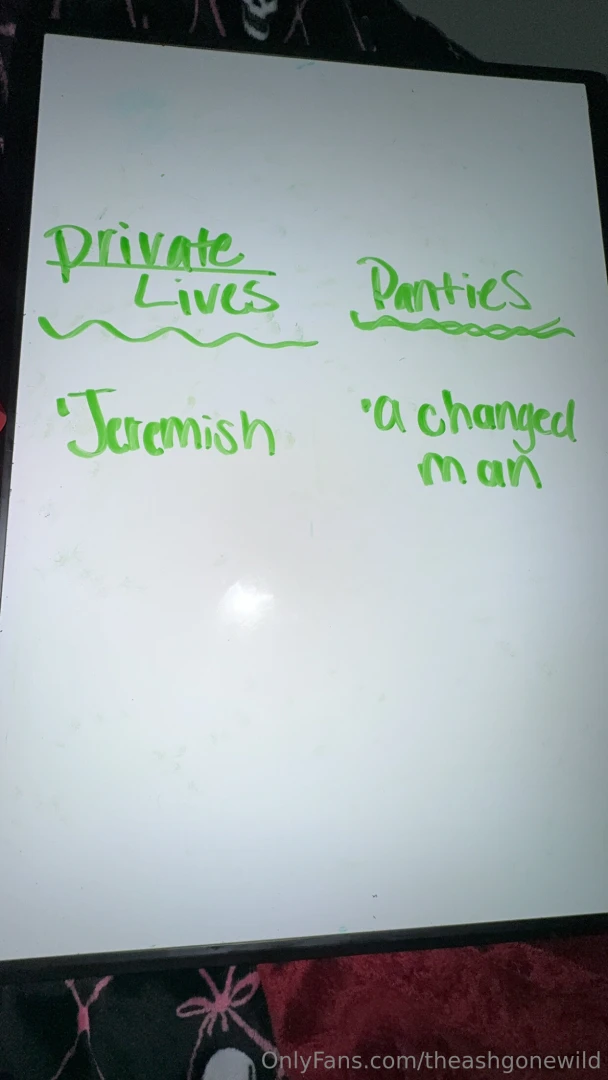 private
Lives
Panties
'Jeremish
'a changed
man
OnlyFans.com/theashgonewild